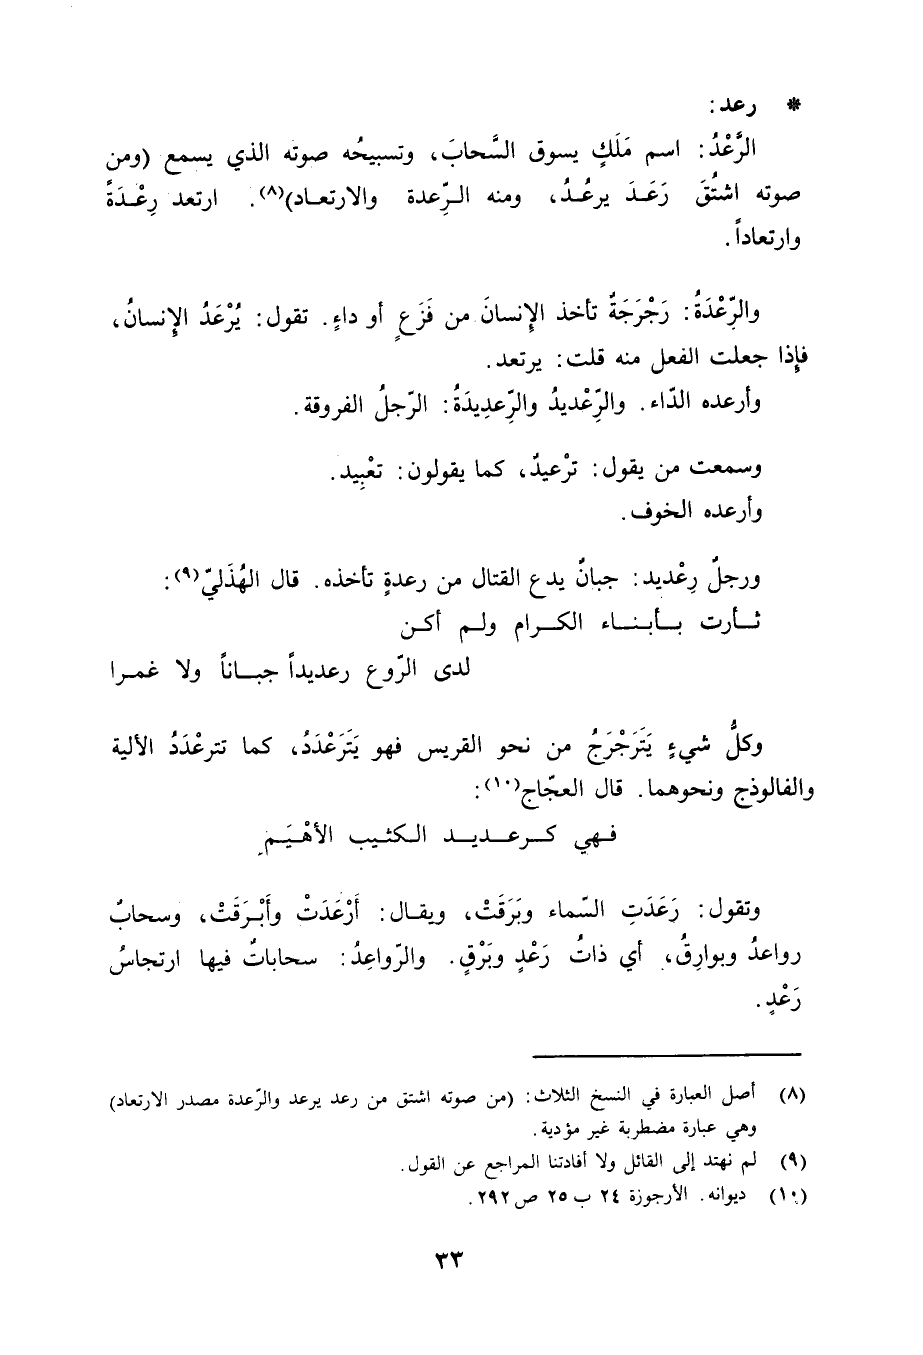 * رعد :
الرَّعْدُ : اسم مَلَكٍ يسوق السَّحابَ، وتسبيحُه صوته الذي يسمع (ومن
صوته اشتُقَ رَعَدَ يرعُدُ، ومنه الرِّعدة والارتعاد)(٨). ارتعد رِعْدَةً
وارتعاداً .
والرِّعْدَةُ : رَجْرَجَةٌ تأخذ الإنسانَ من فَزَعٍ أو داءٍ . تقول : يُرْعَدُ الإنسانُ،
فإذا جعلت الفعل منه قلت : يرتعد .
وأرعده الدّاء . والرِّعْديدُ والرِّعدِيدَةُ : الرّجلُ الفروقة .
وسمعت من يقول : ترْعيدٌ، كما يقولون : تعْبِيد .
وأرعده الخوف .
ورجلٌ رِعْديد : جبانٌ يدع القتال من رعدةٍ تأخذه . قال الهُذَليّ(٩) :
ثأرت بأبناء الكرام ولم أكن
لدى الرّوع رعديداً جباناً ولا غمرا
وكلُّ شيءٍ يَتَرَجْرَجُ من نحو القريس فهو يَتَرَعْدَدُ، كما تترعْدَدُ الألية
والفالوذج ونحوهما . قال العجّاج(١٠) :
فهي كرعديد الكثيب الأهْيَمِ
وتقول : رَعَدَتِ السّماء وبَرَقَتْ، ويقال : أَرْعَدَتْ وأَبْرَقَتْ، وسحابٌ
رواعدُ وبوارِقُ، أي ذاتُ رَعْدٍ وبَرْقٍ . والرّواعِدُ : سحاباتٌ فيها ارتجاسُ
رَعْدٍ .
(٨) أصل العبارة في النسخ الثلاث : (من صوته اشتق من رعد يرعد والرّعدة مصدر الارتعاد)
وهي عبارة مضطربة غير مؤدية .
(٩) لم نهتد إلى القائل ولا أفادتنا المراجع عن القول .
(١٠) ديوانه . الأرجوزة ٢٤ ب ٢٥ ص ٢٩٢ .
٣٣